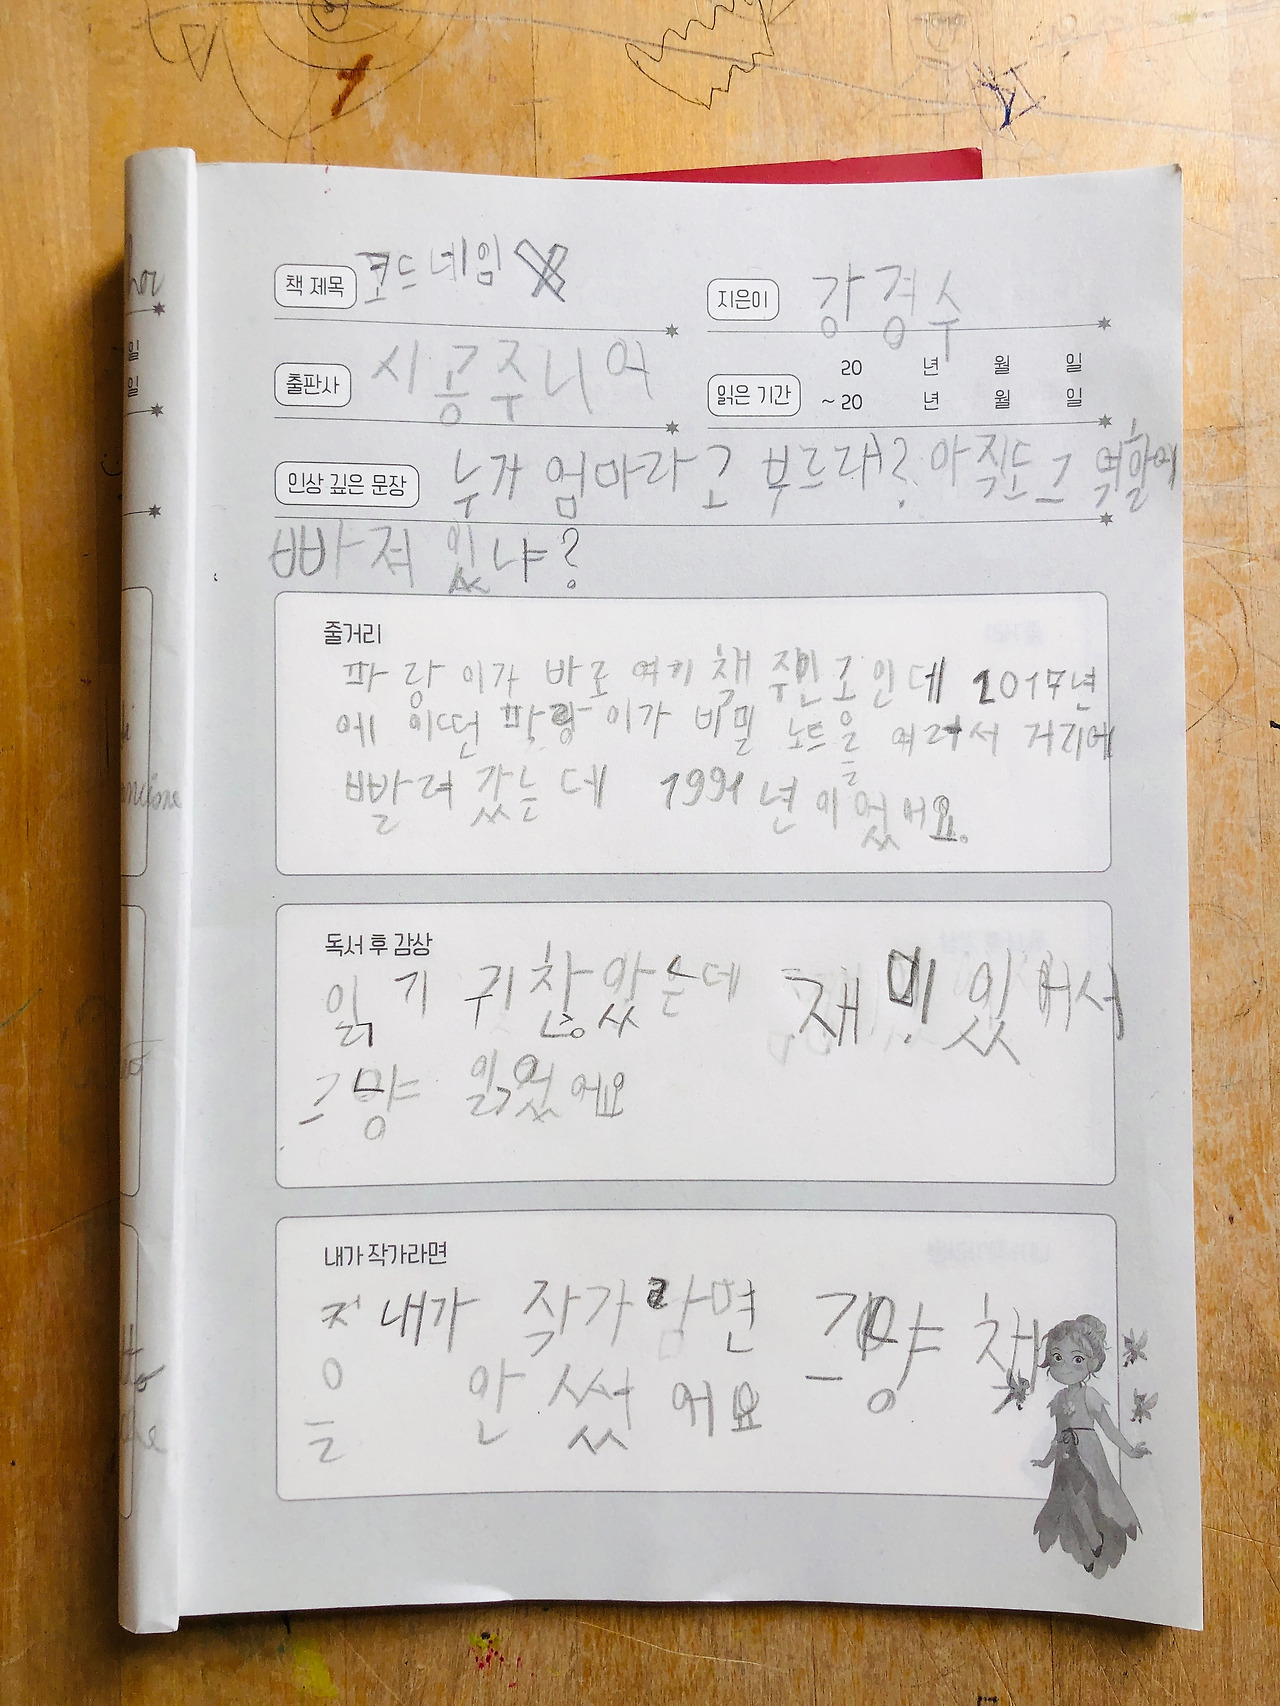 책 제목 코드네임 X
지은이 강경수
출판사 시공주니어
읽은 기간 20 년 월 일
~ 20 년 월 일
인상 깊은 문장 누가 엄마라고 부르래? 아직도 그 역할에
빠져 있냐?
줄거리
파랑이가 바로 여기 책 주인고인데 2017년
에 이떤 파랑이가 비밀 노트을 여러서 거기에
빨려 갔는데 1991년이었어요.
독서 후 감상
읽기 귀찮았는데 재미있어서
그냥 읽었어요
내가 작가라면
내가 작가라면 그냥 책
을 안 썼어요